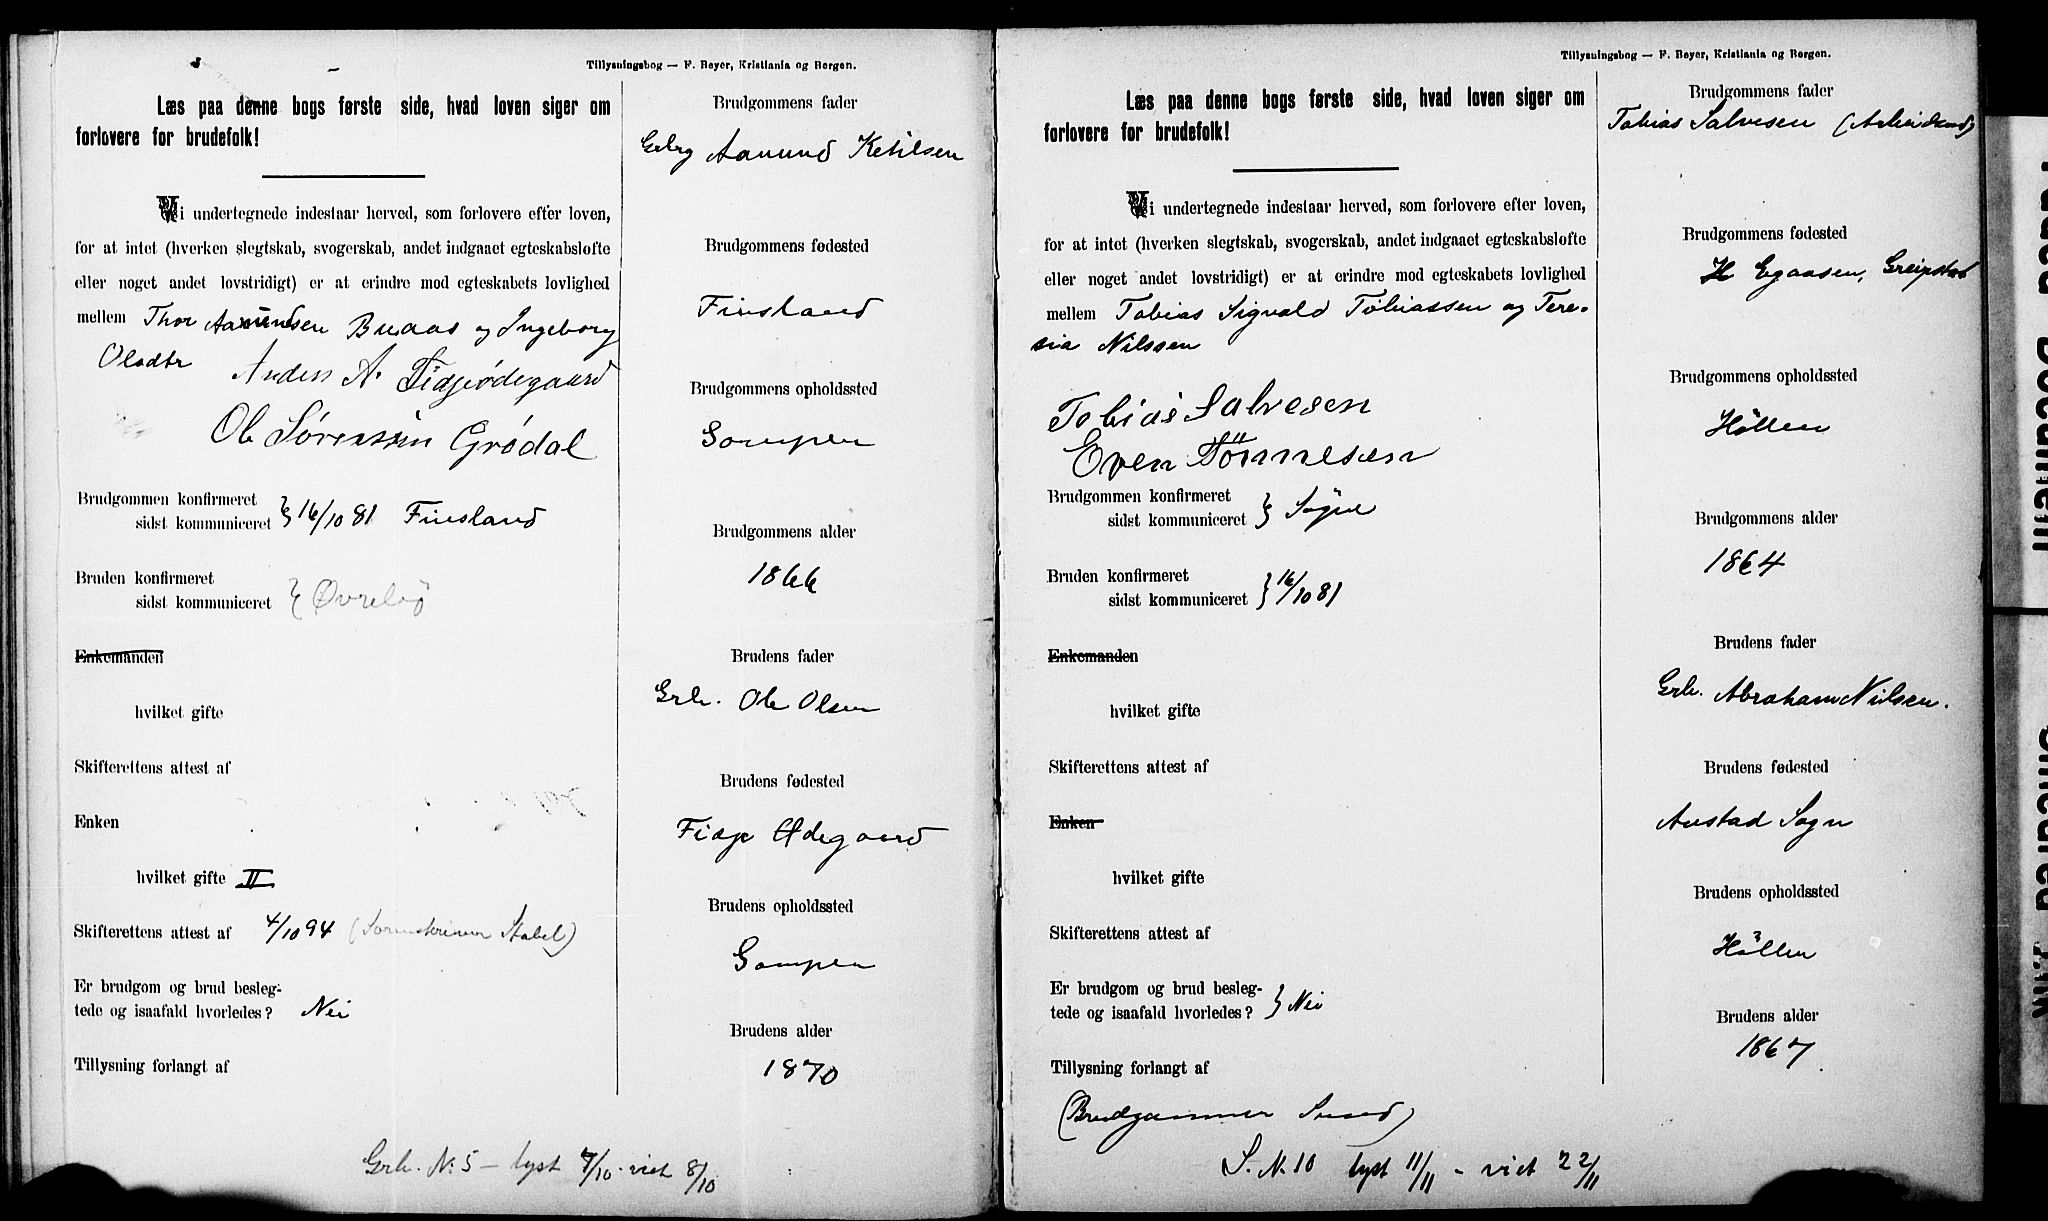 Tillysningsbog — F. Beyer, Kristiania og Bergen.
Læs paa denne bogs første side, hvad loven siger om
forlovere for brudefolk!
Vi undertegnede indestaar herved, som forlovere efter loven,
for at intet (hverken slegtskab, svogerskab, andet indgaaet egteskabsløfte
eller noget andet lovstridigt) er at erindre mod egteskabets lovlighed
mellem Thor Aamundsen Buaas og Ingeborg
Olsdtr
Anders A. Fidjeødegaard
Ole Sørenssen Grødal
Brudgommen konfirmeret
sidst kommuniceret } 16/10 81 Finsland
Bruden konfirmeret
sidst kommuniceret } Øvrebø
Enkemanden
hvilket gifte
Skifterettens attest af
Enken
hvilket gifte II
Skifterettens attest af 4/10 94 (Sorenskriver Stabel)
Er brudgom og brud besleg-
tede og isaafald hvorledes? Nei
Tillysning forlangt af
Grb. N. 5 — lyst 7/10 - viet 8/10
Brudgommens fader
Grbrg Aamund Ketilsen
Brudgommens fødested
Finsland
Brudgommens opholdssted
Gompen
Brudgommens alder
1866
Brudens fader
Grb. Ole Olsen
Brudens fødested
Fidje Ødegaard
Brudens opholdssted
Gompen
Brudens alder
1870
Tillysningsbog — F. Beyer, Kristiania og Bergen.
Læs paa denne bogs første side, hvad loven siger om
forlovere for brudefolk!
Vi undertegnede indestaar herved, som forlovere efter loven,
for at intet (hverken slegtskab, svogerskab, andet indgaaet egteskabsløfte
eller noget andet lovstridigt) er at erindre mod egteskabets lovlighed
mellem Tobias Sigvald Tobiassen og Tere-
sia Nilssen
Tobias Salvesen
Even Tønnesen
Brudgommen konfirmeret
sidst kommuniceret } Søgne
Bruden konfirmeret
sidst kommuniceret } 16/10 81
Enkemanden
hvilket gifte
Skifterettens attest af
Enken
hvilket gifte
Skifterettens attest af
Er brudgom og brud besleg-
tede og isaafald hvorledes? } Nei
Tillysning forlangt af
(Brudgommen Smed)
S. N. 10 lyst 11/11 - viet 22/11
Brudgommens fader
Tobias Salvesen (Arbeidsmd)
Brudgommens fødested
Egaasen, Greipstad
Brudgommens opholdssted
Høllen
Brudgommens alder
1864
Brudens fader
Grb. Abraham Nilsen.
Brudens fødested
Austad Sogn
Brudens opholdssted
Høllen
Brudens alder
1867